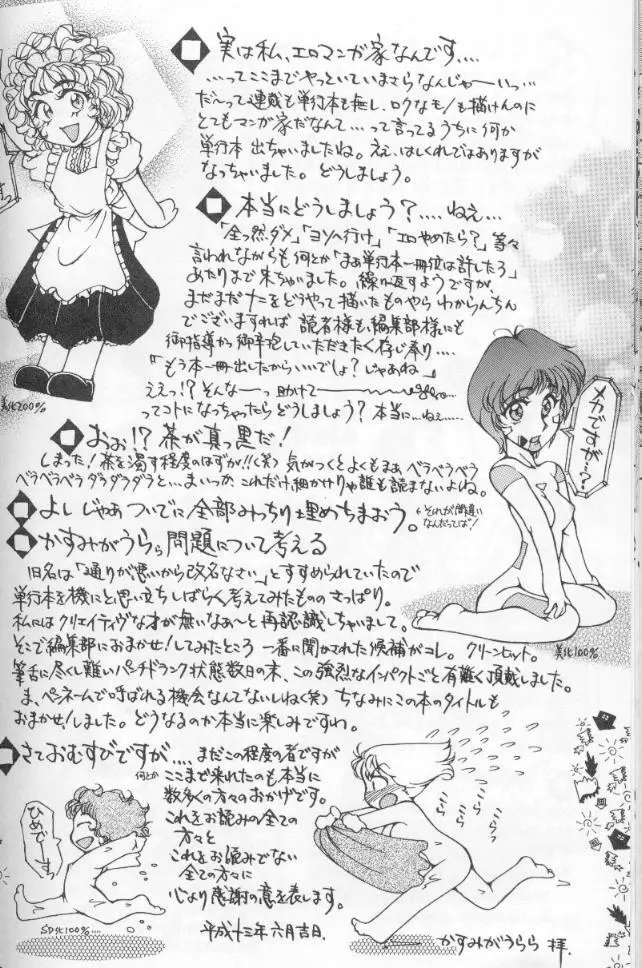 実は私、エロマンガ家なんです....
...ってここまでやっといていまさらなんじゃーいっ...
だーって連載も単行本も無し、ロクなモノも描けんのに
とてもマンガ家だなんて...って言ってるうちに何か
単行本 出ちゃいましたね。ええ、はしくれではありますが
なっちゃいました。どうしましょう。
本当にどうしましょう?....ねえ...
「全っ然ダメ」「ヨソへ行け」「エロやめたら?」等々
言われながらも何とか「まぁ単行本一冊位は許したろ」
あたりまで来ちゃいました。繰り返すようですが、
まだまだナニをどうやって描いたものやら わからんちん
でございますれば 読者様も編集部様にも
御指導かつ御辛抱していただきたく存じ奉り....
「もう本一冊出したからいいでしょ?じゃあね」
ええっ!?そんなーっ 助けて
ってコトになっちゃったらどうしましょう?本当に...ねえ......
美化200%
メカですが...?
それが間違いなんだってば!
美化100%
おぉ!?茶が真っ黒だ!
しまった!茶を濁す程度のはずが!!(笑) 気がつくとよくもまぁ ベラベラベラ
ベラベラベラ ダラダラダラと...まいっか、これだけ細かけりゃ誰も読まないよね。
よし じゃあついでに全部みっちり埋めちまおう。
かすみがうらら問題について考える
旧名は「通りが悪いから改名なさい」とすすめられていたので
単行本を機にと思い立ちしばらく考えてみたものの さっぱり。
私にはクリエイティヴな才が無いなぁ〜と再認識しちゃいまして。
そこで編集部におまかせ!してみたところ 一番に聞かされた候補がコレ。クリーンヒット。
筆舌に尽くし難いパンチドランク状態数日の末、この強烈なインパクトごと有難く頂戴しました。
ま、ペンネームで呼ばれる機会なんてないしね(笑) ちなみにこの本のタイトルも
おまかせ!しました。どうなるのか本当に楽しみですわ。
さておむすびですが....まだこの程度の者ですが
何とかここまで来れたのも本当に
数多くの方々のおかげです。
これをお読みの全ての
方々と
これをお読みでない
全ての方々に
心より感謝の意を表します。
平成十三年六月吉日.
ひめです。
SD化100%...
うらら
うらら
かすみがうらら 拝.